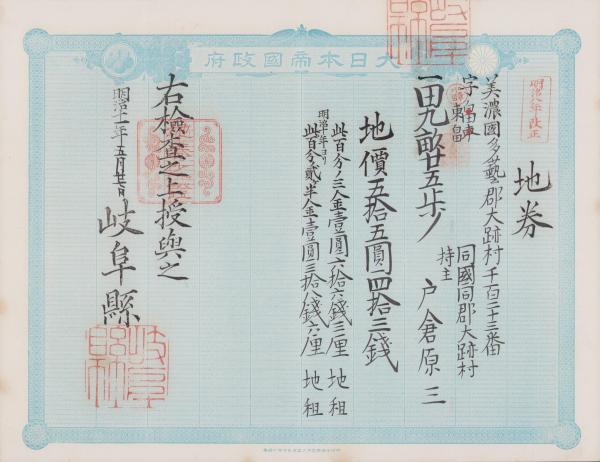 大日本帝國政府
明治八年改正
地券
美濃國多藝郡大跡村千百二十三番
字東畠
同國同郡大跡村
持主 戸倉原三
一田九畝廿五歩
地價五拾五圓四拾三錢
此百分ノ三金壹圓六拾六錢三厘 地租
明治十年ヨリ
此百分ノ貳半金壹圓三拾八錢六厘 地租
右檢査之上授與之
明治十一年五月廿日
岐阜縣